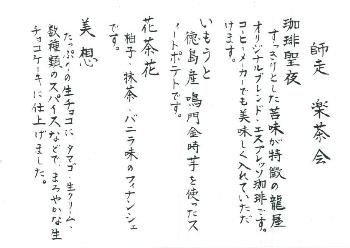 師走 楽茶会
珈琲聖夜
すっきりとした苦味が特徴の龍屋
オリジナルブレンド・エスプレッソ珈琲です。
コーヒーメーカーでも美味しく入れていただ
けます。
いもうと
徳島産鳴門金時芋を使ったス
イートポテトです。
花茶花
柚子・抹茶・バニラ味のフィナンシェ
です。
美想
たっぷりの生チョコに、タマゴ、生クリーム、
数種類のスパイスなどで、まろやかな生
チョコケーキに仕上げました。